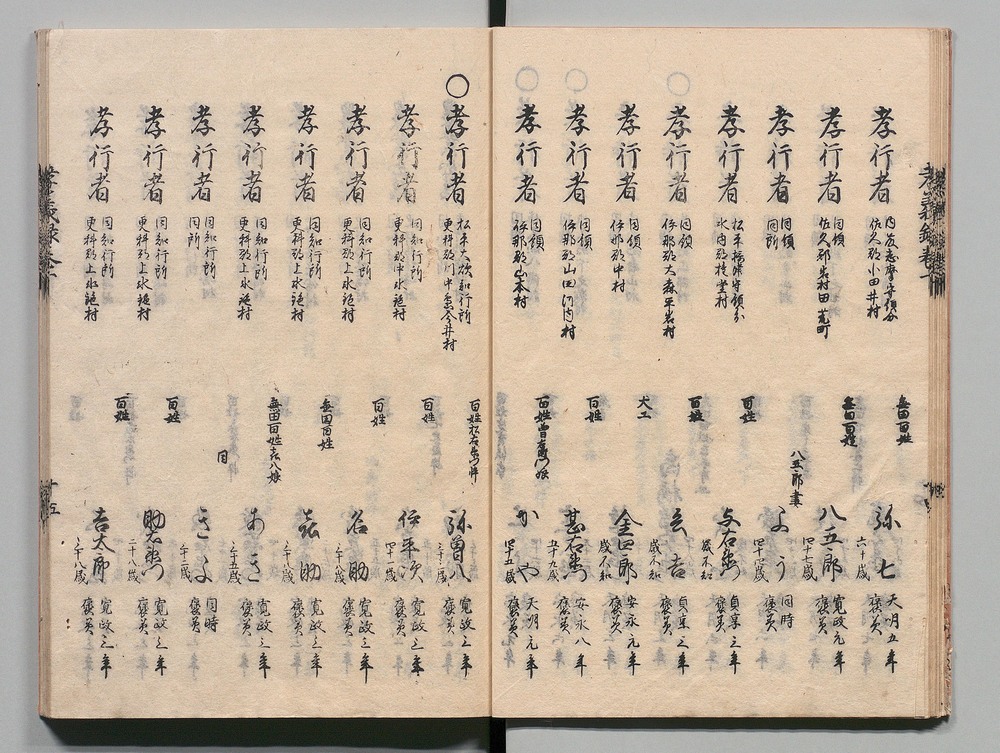 孝行者 内藤志摩守領分 佐久郡小田井村 無田百姓 弥七 六十歳 天明五年 褒美
孝行者 同領 佐久郡岩村田荒町 無田百姓 八五郎 四十二歳 寛政元年 褒美
孝行者 同領 同所 八五郎妻 よう 四十歳 同時 褒美
孝行者 水内郡 村 百姓 与右衛門 歳不知 貞享三年 褒美
○孝行者 同領 伊那郡大森平岩村 百姓 吉 歳不知 貞享三年 褒美
孝行者 同領 伊那郡中村 大工 金四郎 歳不知 安永元年 褒美
○孝行者 同領 伊那郡山田河内村 百姓 甚右衛門 五十九歳 安永八年 褒美
○孝行者 同領 伊那郡山本村 百姓曽右衛門娘 かや 四十五歳 天明元年 褒美
○孝行者 松平大 知行所 更科郡川中島今井村 百姓松右衛門忰 弥曽八 三十二歳 寛政三年 褒美
孝行者 同知行所 更科郡中氷鉋村 百姓 伊平次 四十一歳 寛政三年 褒美
孝行者 同知行所 更科郡上氷鉋村 百姓 名助 三十八歳 寛政三年 褒美
孝行者 同知行所 更科郡上氷鉋村 無田百姓 喜助 三十八歳 寛政三年 褒美
孝行者 同知行所 更科郡上氷鉋村 無田百姓喜八娘 あさ 三十五歳 寛政三年 褒美
孝行者 同知行所 同所 同 さよ 三十二歳 同時 褒美
孝行者 同知行所 更科郡上氷鉋村 百姓 助右衛門 二十八歳 寛政三年 褒美
孝行者 同知行所 更科郡上氷鉋村 百姓 吉太郎 三十八歳 寛政三年 褒美
孝義録巻
十五